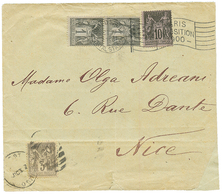 PARIS
EXPOSITION
1900
10
Madame Olga Adreani
6. Rue Dante
Nice